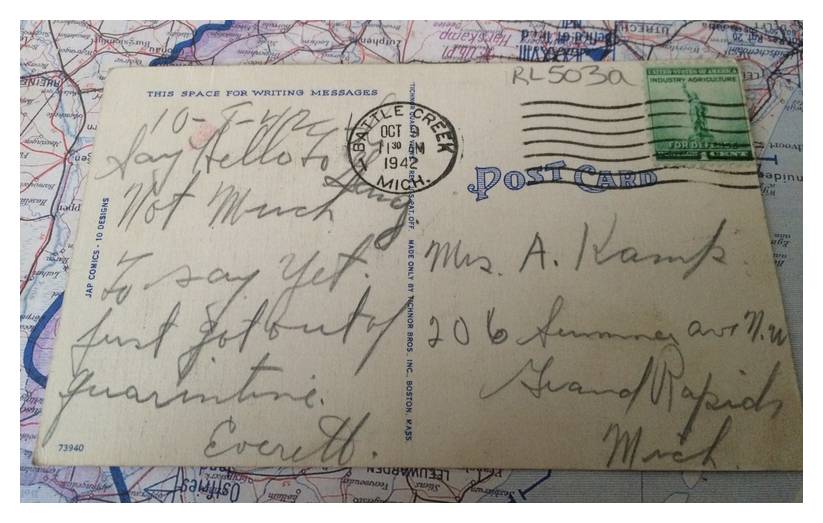 THIS SPACE FOR WRITING MESSAGES
10-8-42
Say Hello to the
Gang
Not Much
To say Yet.
Just got out of
quarintine.
Everett.
JAP COMICS - 10 DESIGNS
73940
MADE ONLY BY TICHNOR BROS. INC., BOSTON, MASS.
BATTLE CREEK
OCT 9
11 30 AM
1942
MICH.
RL503a
UNITED STATES OF AMERICA
INDUSTRY AGRICULTURE
FOR DEFENSE
1 CENT
POST CARD
Mrs. A. Kamp
206 Summer ave N.W
Grand Rapids
Mich.
UTRECHT
LEEUWARDEN
Zutphen
Harskamp